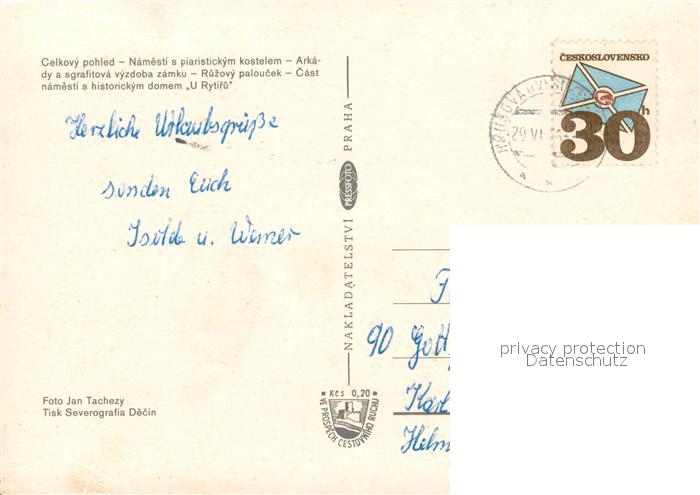 Celkový pohled – Náměstí s piaristickým kostelem – Arká-
dy a sgrafitová výzdoba zámku – Růžový palouček – Část
náměstí s historickým domem „U Rytířů"
Herzliche Urlaubsgrüße
senden Euch
Isolde u. Werner
NAKLADATELSTVÍ PRESSFOTO PRAHA
ČESKOSLOVENSKO
30h
29.VI.
90
Helm
privacy protection
Datenschutz
Foto Jan Tachezy
Tisk Severografia Děčín
Kčs 0,20
VE PROSPĚCH CESTOVNÍHO RUCHU